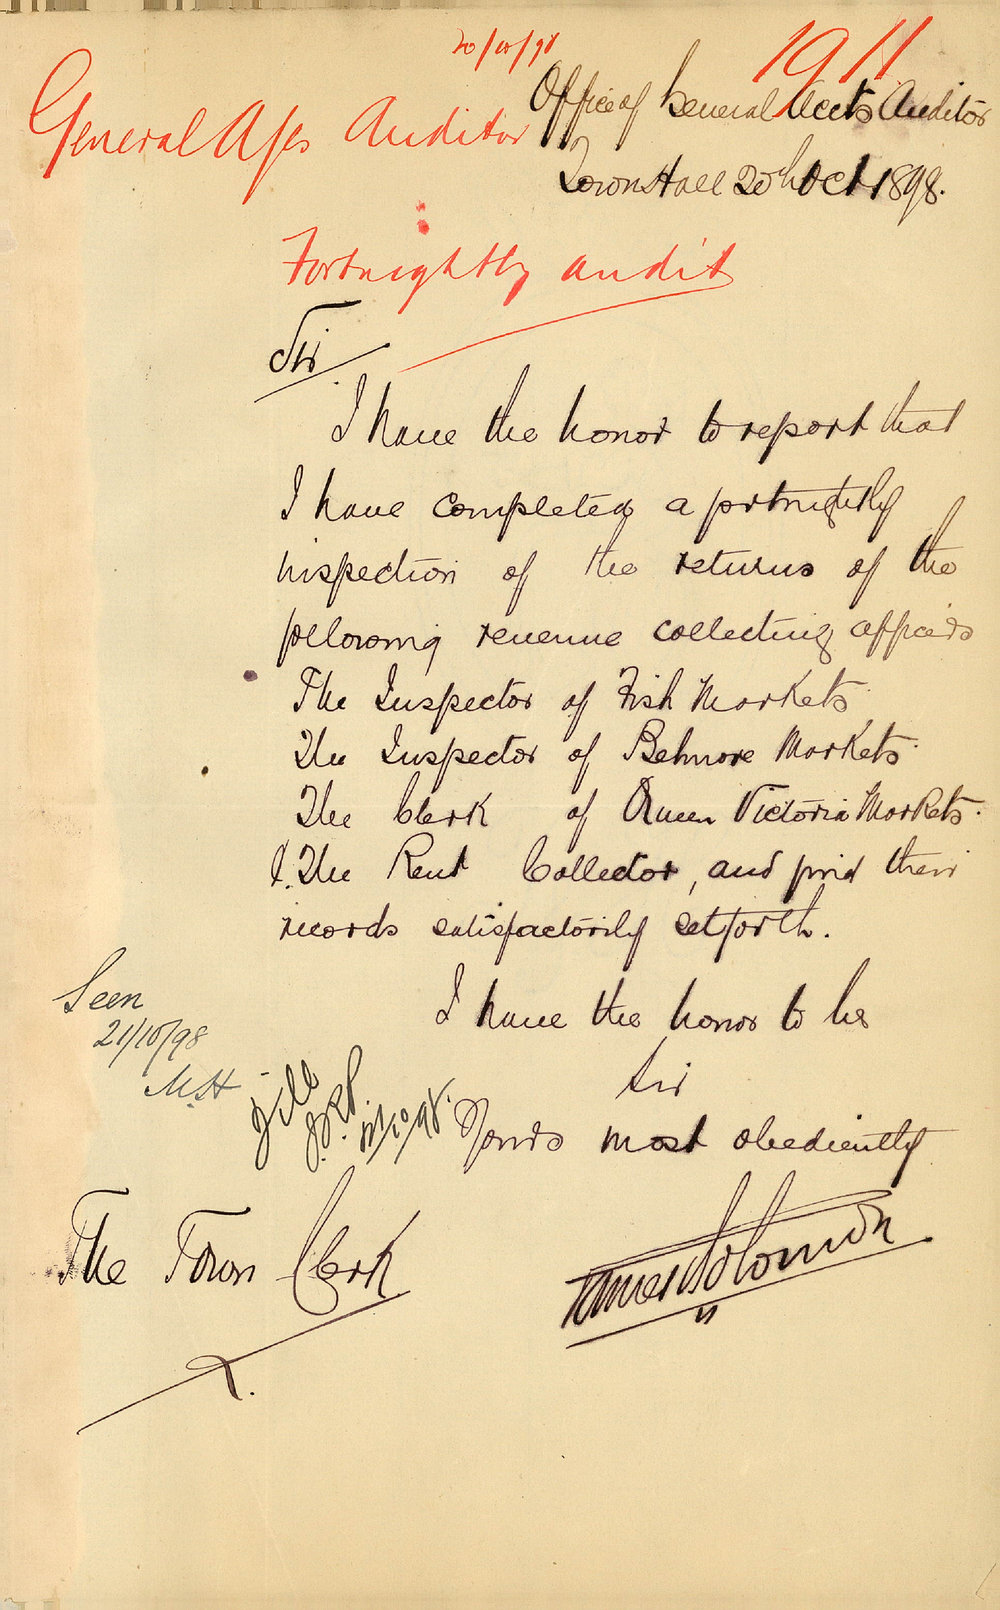 20/10/98
1911
General A/cs Auditor
Office of General Accts Auditor
Town Hall 20th Oct 1898.
Fortnightly audit
Sir
I have the honor to report that
I have completed a fortnightly
inspection of the returns of the
following revenue collecting officers
The Inspector of Fish Markets
The Inspector of Belmore Markets
The Clerk of Queen Victoria Markets.
&. The Rent Collector, and find their
records satisfactorily set forth.
I have the honor to be
Sir
Yours most obediently
Seen
21/10/98
M.H
File
21/10/98.
James Solomon
The Town Clerk